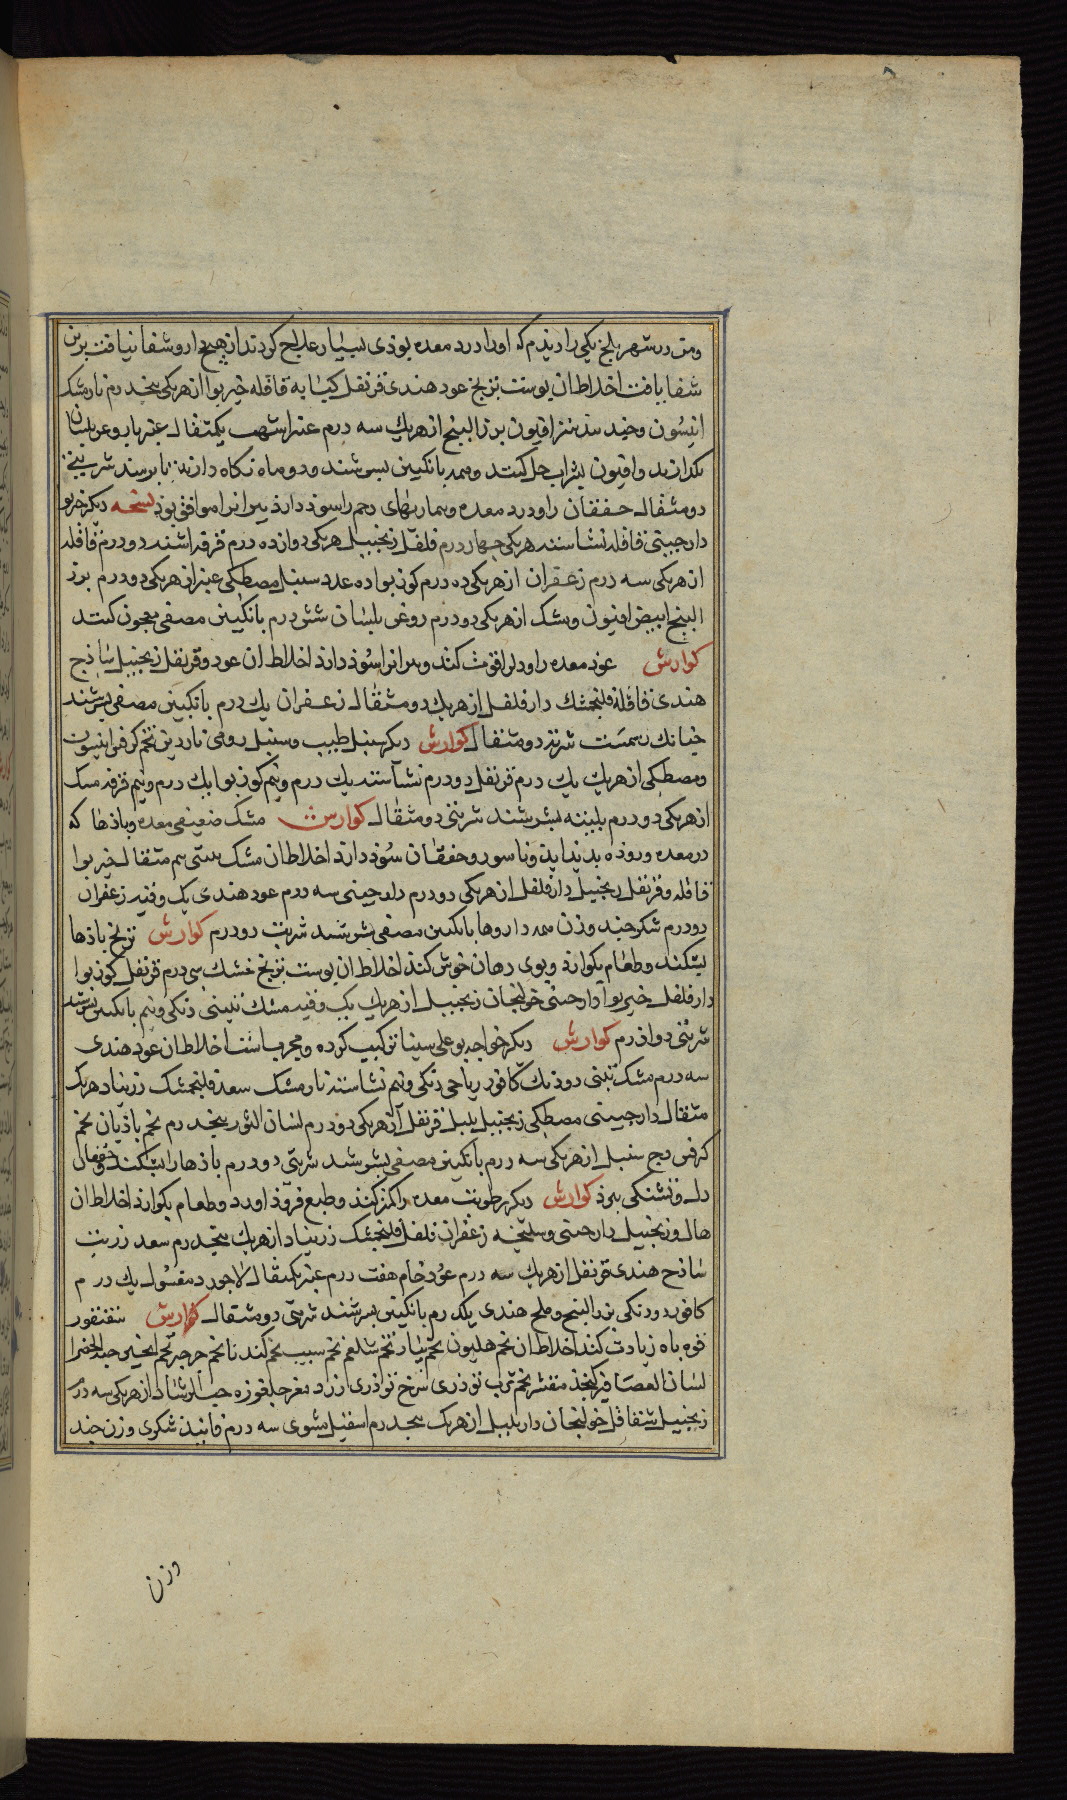 ومن در شهر بلخ یکی را دیذم که او را درد معده بوذی بسیار علاج کردند از هیچ دارو شفا نیافت برین
شفا یافت اخلاط ان پوست ترنج عود هندی قرنفل کبابه قاقله خیربوا از هریکی پنجدرم نارمشک
انیسون وجندبیدستر افیون بزر البنج از هریك سه درم عنبر اشهب یکمثقال عنبر با روغن بلسان
بکدازند وافیون بشراب حل کنند وهمه بانکبین بسرشند ودو ماه نکاه دارند تا برسد شربتی
دو مثقال خفقان را ودرد معده وبیماریهای رحم را سوذ دارذ پیرانرا موافق بوذ نسخه دیکر خیربو
دارچینی قاقله نشاسته هریکی چهار درم فلفل زنجبیل هریکی دوازده درم قرفه اشنه دو درم قاقله
از هریکی سه درم زعفران از هریکی ده درم کوزبوا ده عدد سنبل مصطکی عنبر از هریکی دودرم بزر
البنج ابیض افیون ومشک از هریکی دودرم روغن بلسان شش درم بانکبین مصفی معجون کنند
کوارش عود معده را ودل را قوت کند وپیرانرا سوذ دارذ اخلاط ان عود وقرنفل زنجبیل ساذج
هندی قاقله فلنجمشك دارفلفل از هریك دو مثقال زعفران یك درم بانکبین مصفی بسرشند
چنانك رسمست شربتی دو مثقال کوارش دیکر سنبل طیب وسنبل رومی ناردین تخم کرفس انیسون
ومصطکی از هریك یك درم قرنفل دودرم نشاسته یك درم ونیم کوزبوا یك درم ونیم قرفه مسک
از هریکی دودرم بسرشند شربتی دو مثقال کوارش مشک ضعیفی معده وباذها که
در معده وروده بدید اید وناسور وخفقان سوذ دارذ اخلاط ان مشک تبتی نیم مثقال خیربوا
قاقله وقرنفل زنجبیل دارفلفل از هریکی دودرم دارچینی سه درم عود هندی یک وقیه زعفران
دودرم شکر چند وزن همه داروها بانکبین مصفی بسرشند شربت دودرم کوارش ترنج باذها
بشکند وطعام بکوارذ وبوی دهان خوش کند اخلاط ان پوست ترنج خشك سی درم قرنفل کوزبوا
دارفلفل خیربوا دارچینی خولنجان زنجبیل از هریك یک وقیه مشك تبتی دنکی ونیم بانکبین بسرشند
شربتی دوازدرم کوارش دیکر خواجه بوعلی سینا ترکیب کرده ومجرب است اخلاط ان عود هندی
سه درم مشک تبتی دو دنك کافور ریاحی دنکی ونیم نشاسته نارمشک سعد فلنجمشک زرنباد هریک
مثقال دارچینی مصطکی زنجبیل بلبل قرنفل از هریکی دودرم لسان الثور پنجدرم تخم باذیان تخم
کرفس وج سنبل از هریکی سه درم بانکبین مصفی بسرشند شربتی دودرم باذها را بشکند وخفقان
دل وتشنکی ببرذ کوارش دیکر رطوبت معده را کمتر کند وطبع فروذ اورد وطعام بکوارذ اخلاط ان
هال وزنجبیل دارچینی وسلیخه زعفران فلفل فلنجمشک زرنباد از هریك پنجدرم سعد زرنب
ساذج هندی قرنفل از هریك سه درم عود خام هفت درم عنبر یکمثقال لاجورد مغسول یك درم
کافور دودنکی بزر البنج وملح هندی یکدرم بانکبین بسرشند شربتی دو مثقال کوارش سقنقور
قوه باه زیادت کند اخلاط ان تخم هلیون تخم پیاز تخم شلغم تخم سبست تخم کندنا تخم جرجیر تخم انجیر حب الخضرا
لسان العصافیر کنجذ مقشر تخم ترب توذری سرخ توذری زرد مغز جلغوزه حب الرشاد از هریکی سه درم
زنجبیل شقاقل خولنجان داربلبل از هریک پنجدرم اسقیل مشوی سه درم فانیذ شکری وزن چند
وزن